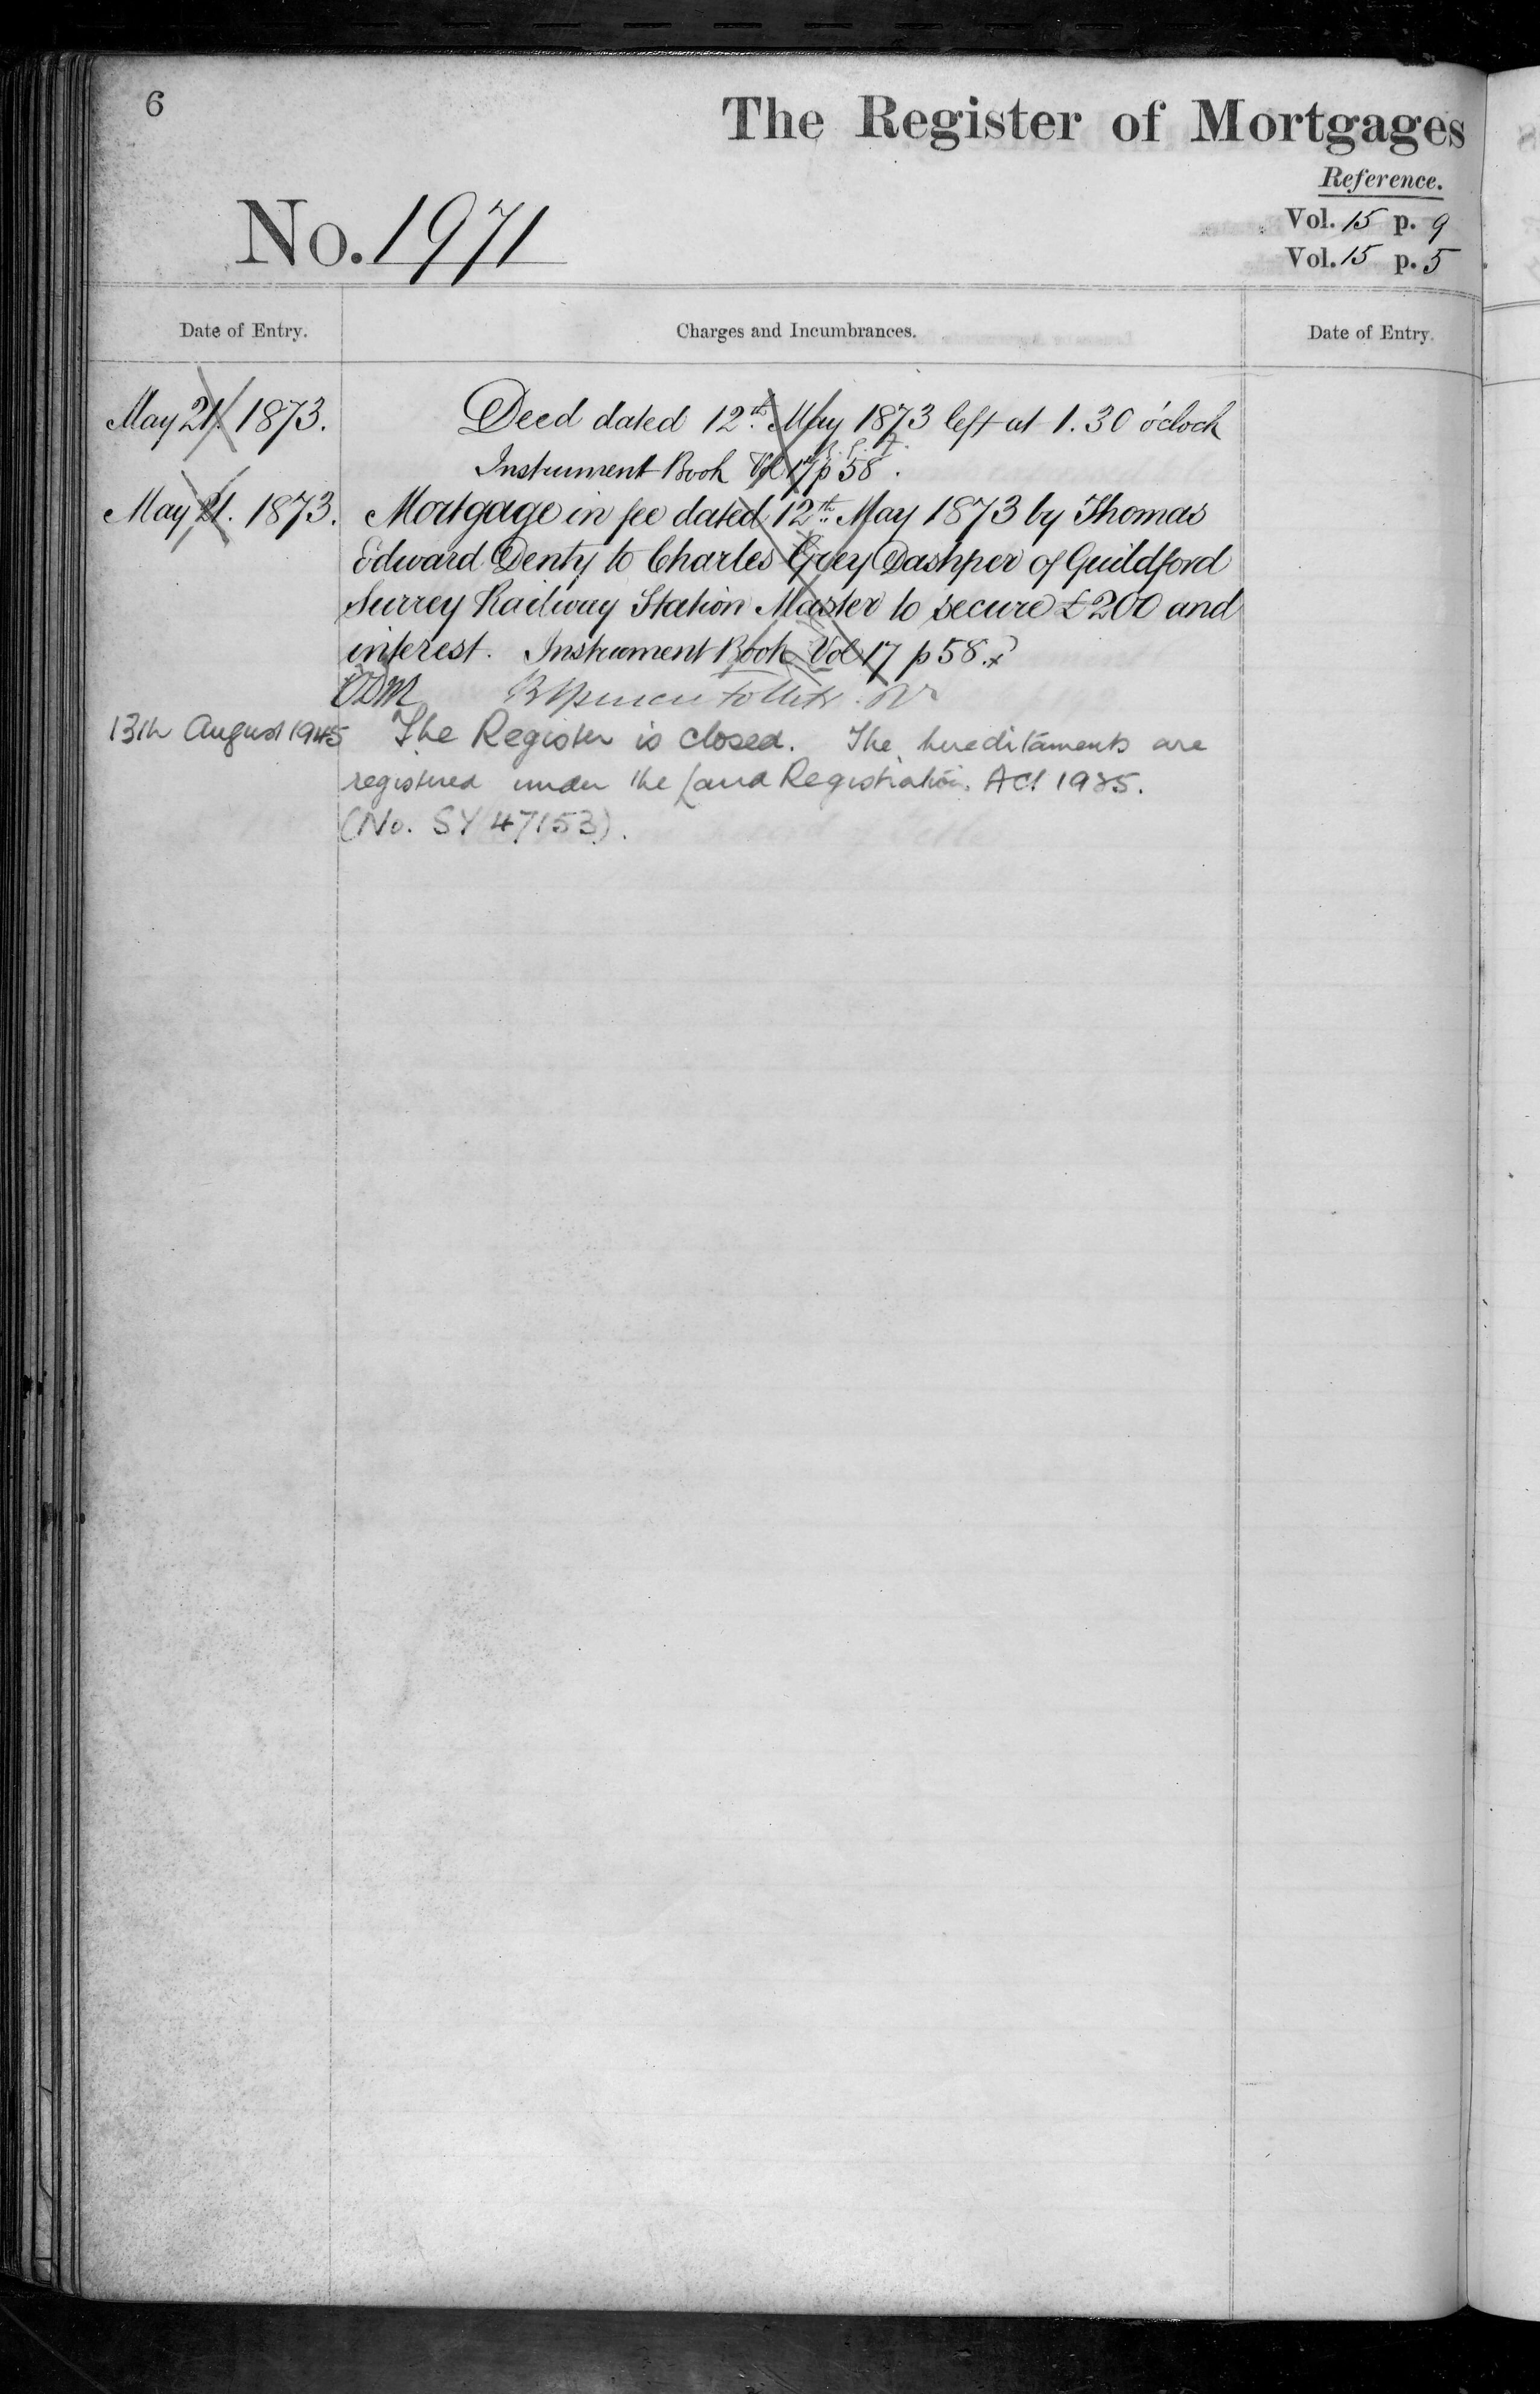 6
The Register of Mortgages
Reference.
No. 1971
Vol. 15 p. 9
Vol. 15 p. 5
Date of Entry.
Charges and Incumbrances.
Date of Entry.
May 21. 1873.
Deed dated 12th May 1873 left at 1.30 o'clock
Instrument Book Vol 17 p 58.
May 21. 1873.
Mortgage in fee dated 12th May 1873 by Thomas
Edward Denty to Charles Grey Dashper of Guildford
Surrey Railway Station Master to secure £200 and
interest. Instrument Book Vol 17 p 58.
13th August 1945
The Register is closed. The hereditaments are
registered under the Land Registration Act 1925.
(No. SY 47153).